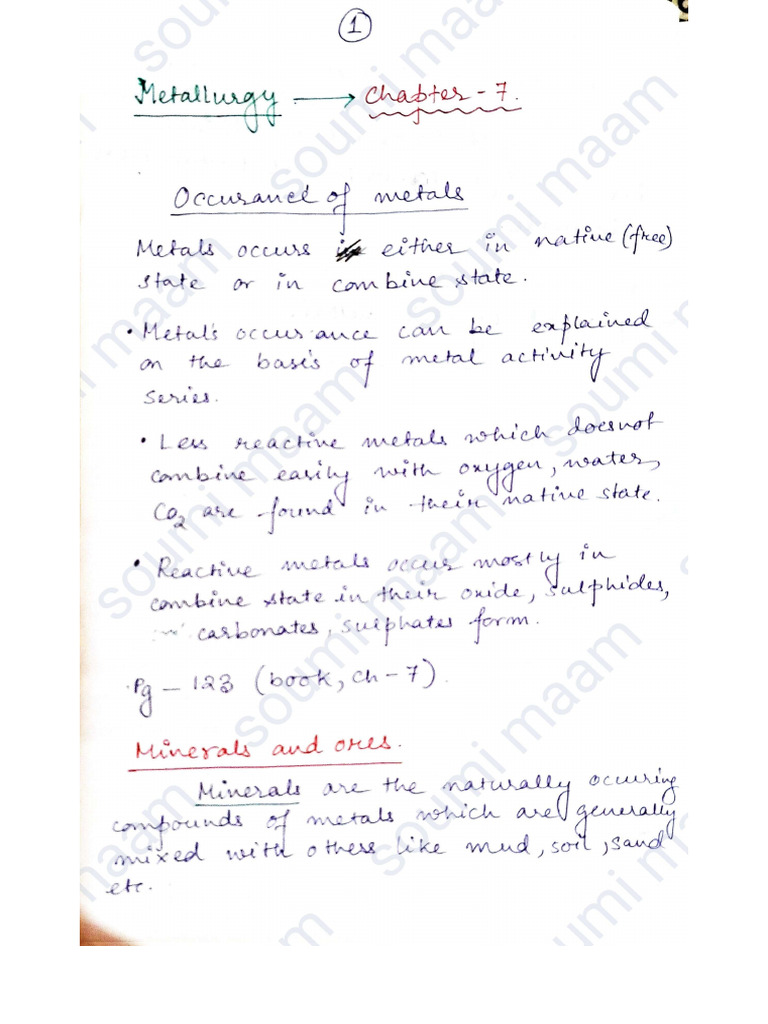 1
Metallurgy → Chapter - 7.
Occurancel of metals
Metals occurs either in native (free)
state or in combine state.
• Metal's occurance can be explained
on the basis of metal activity
series.
• Less reactive metals which doesnot
combine easily with oxygen, water,
CO2 are found in their native state.
• Reactive metals occur mostly in
combine state in their oxide, sulphides,
carbonates, sulphates form.
Pg - 123 (book, ch - 7).
Minerals and ores.
Minerals are the naturally occuring
compounds of metals which are generally
mixed with others like mud, soil, sand
etc.
soumi maam